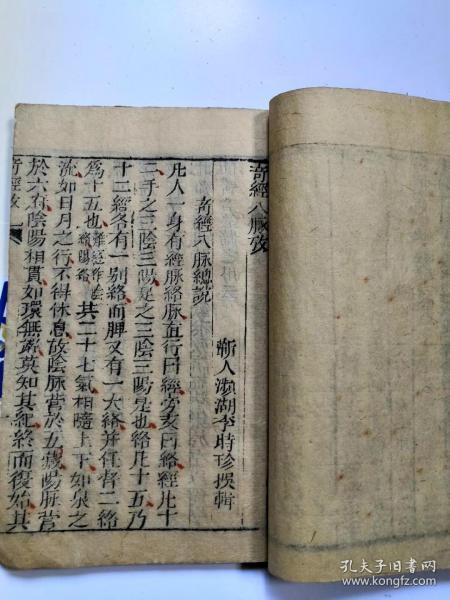 奇經八脉攷
蘄人瀕湖李時珍撰輯
奇經八脉總說
凡人一身有經脉絡脉直行曰經旁支曰絡經凡十
二手之三陰三陽足之三陰三陽是也絡凡十五乃
十二經各有一別絡而脾又有一大絡并任督二絡
爲十五也難經作陰絡陽絡共二十七氣相隨上下如泉之
流如日月之行不得休息故陰脉營於五藏陽脉營
於六府陰陽相貫如環無端莫知其紀終而復始其
奇經攷
孔夫子旧书网
www.kongfz.com